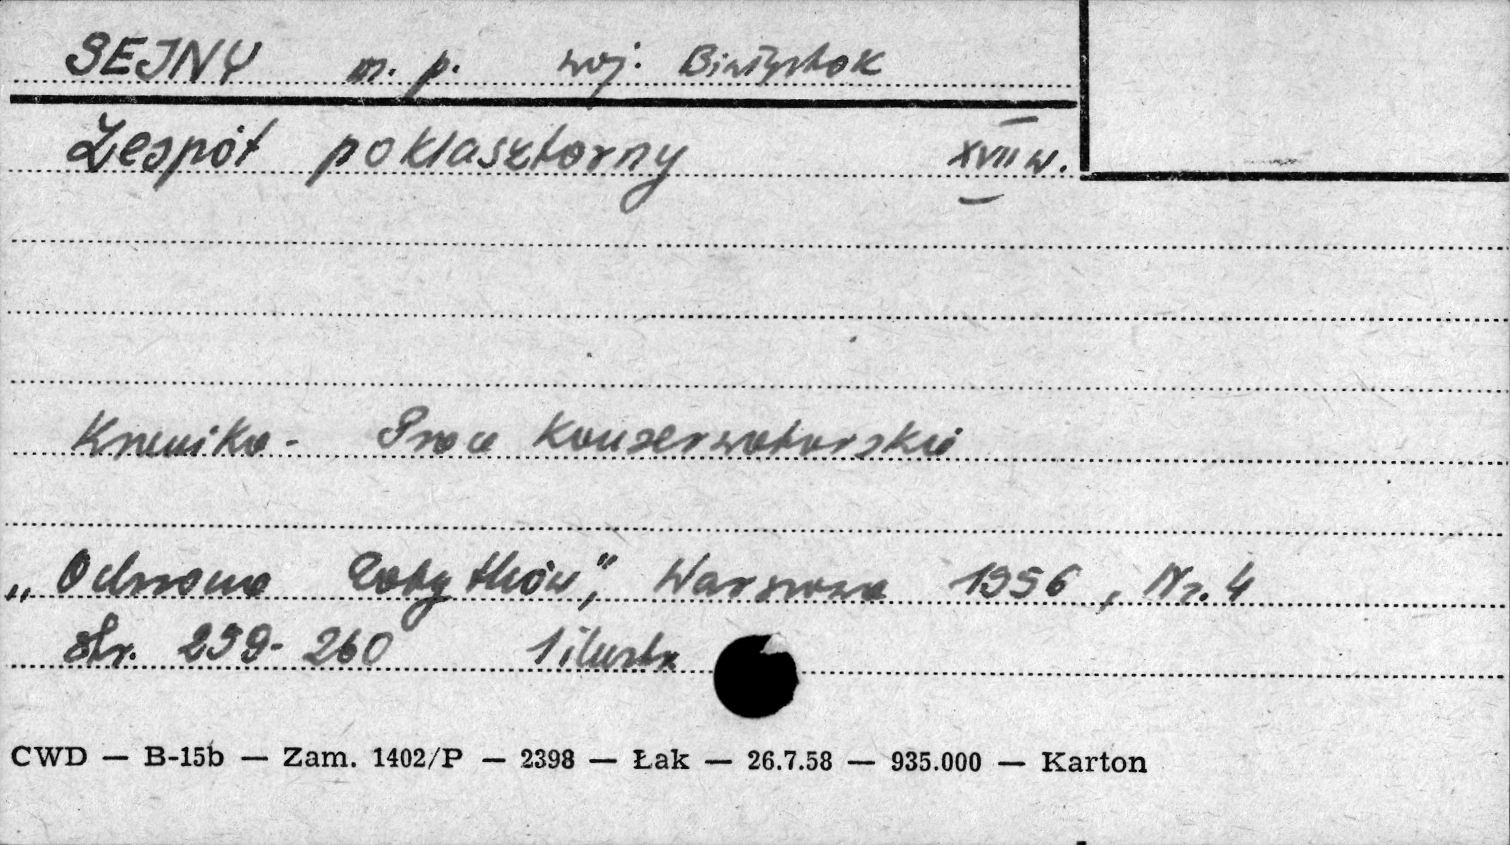 SEJNY m. p. woj. Białystok
Zespół poklasztorny XVII w.
Kronika - Prace konserwatorskie
„Ochrona Zabytków”, Warszawa 1956, Nr. 4
str. 259-260 1 ilustr.
CWD — B-15b — Zam. 1402/P — 2398 — Łak — 26.7.58 — 935.000 — Karton